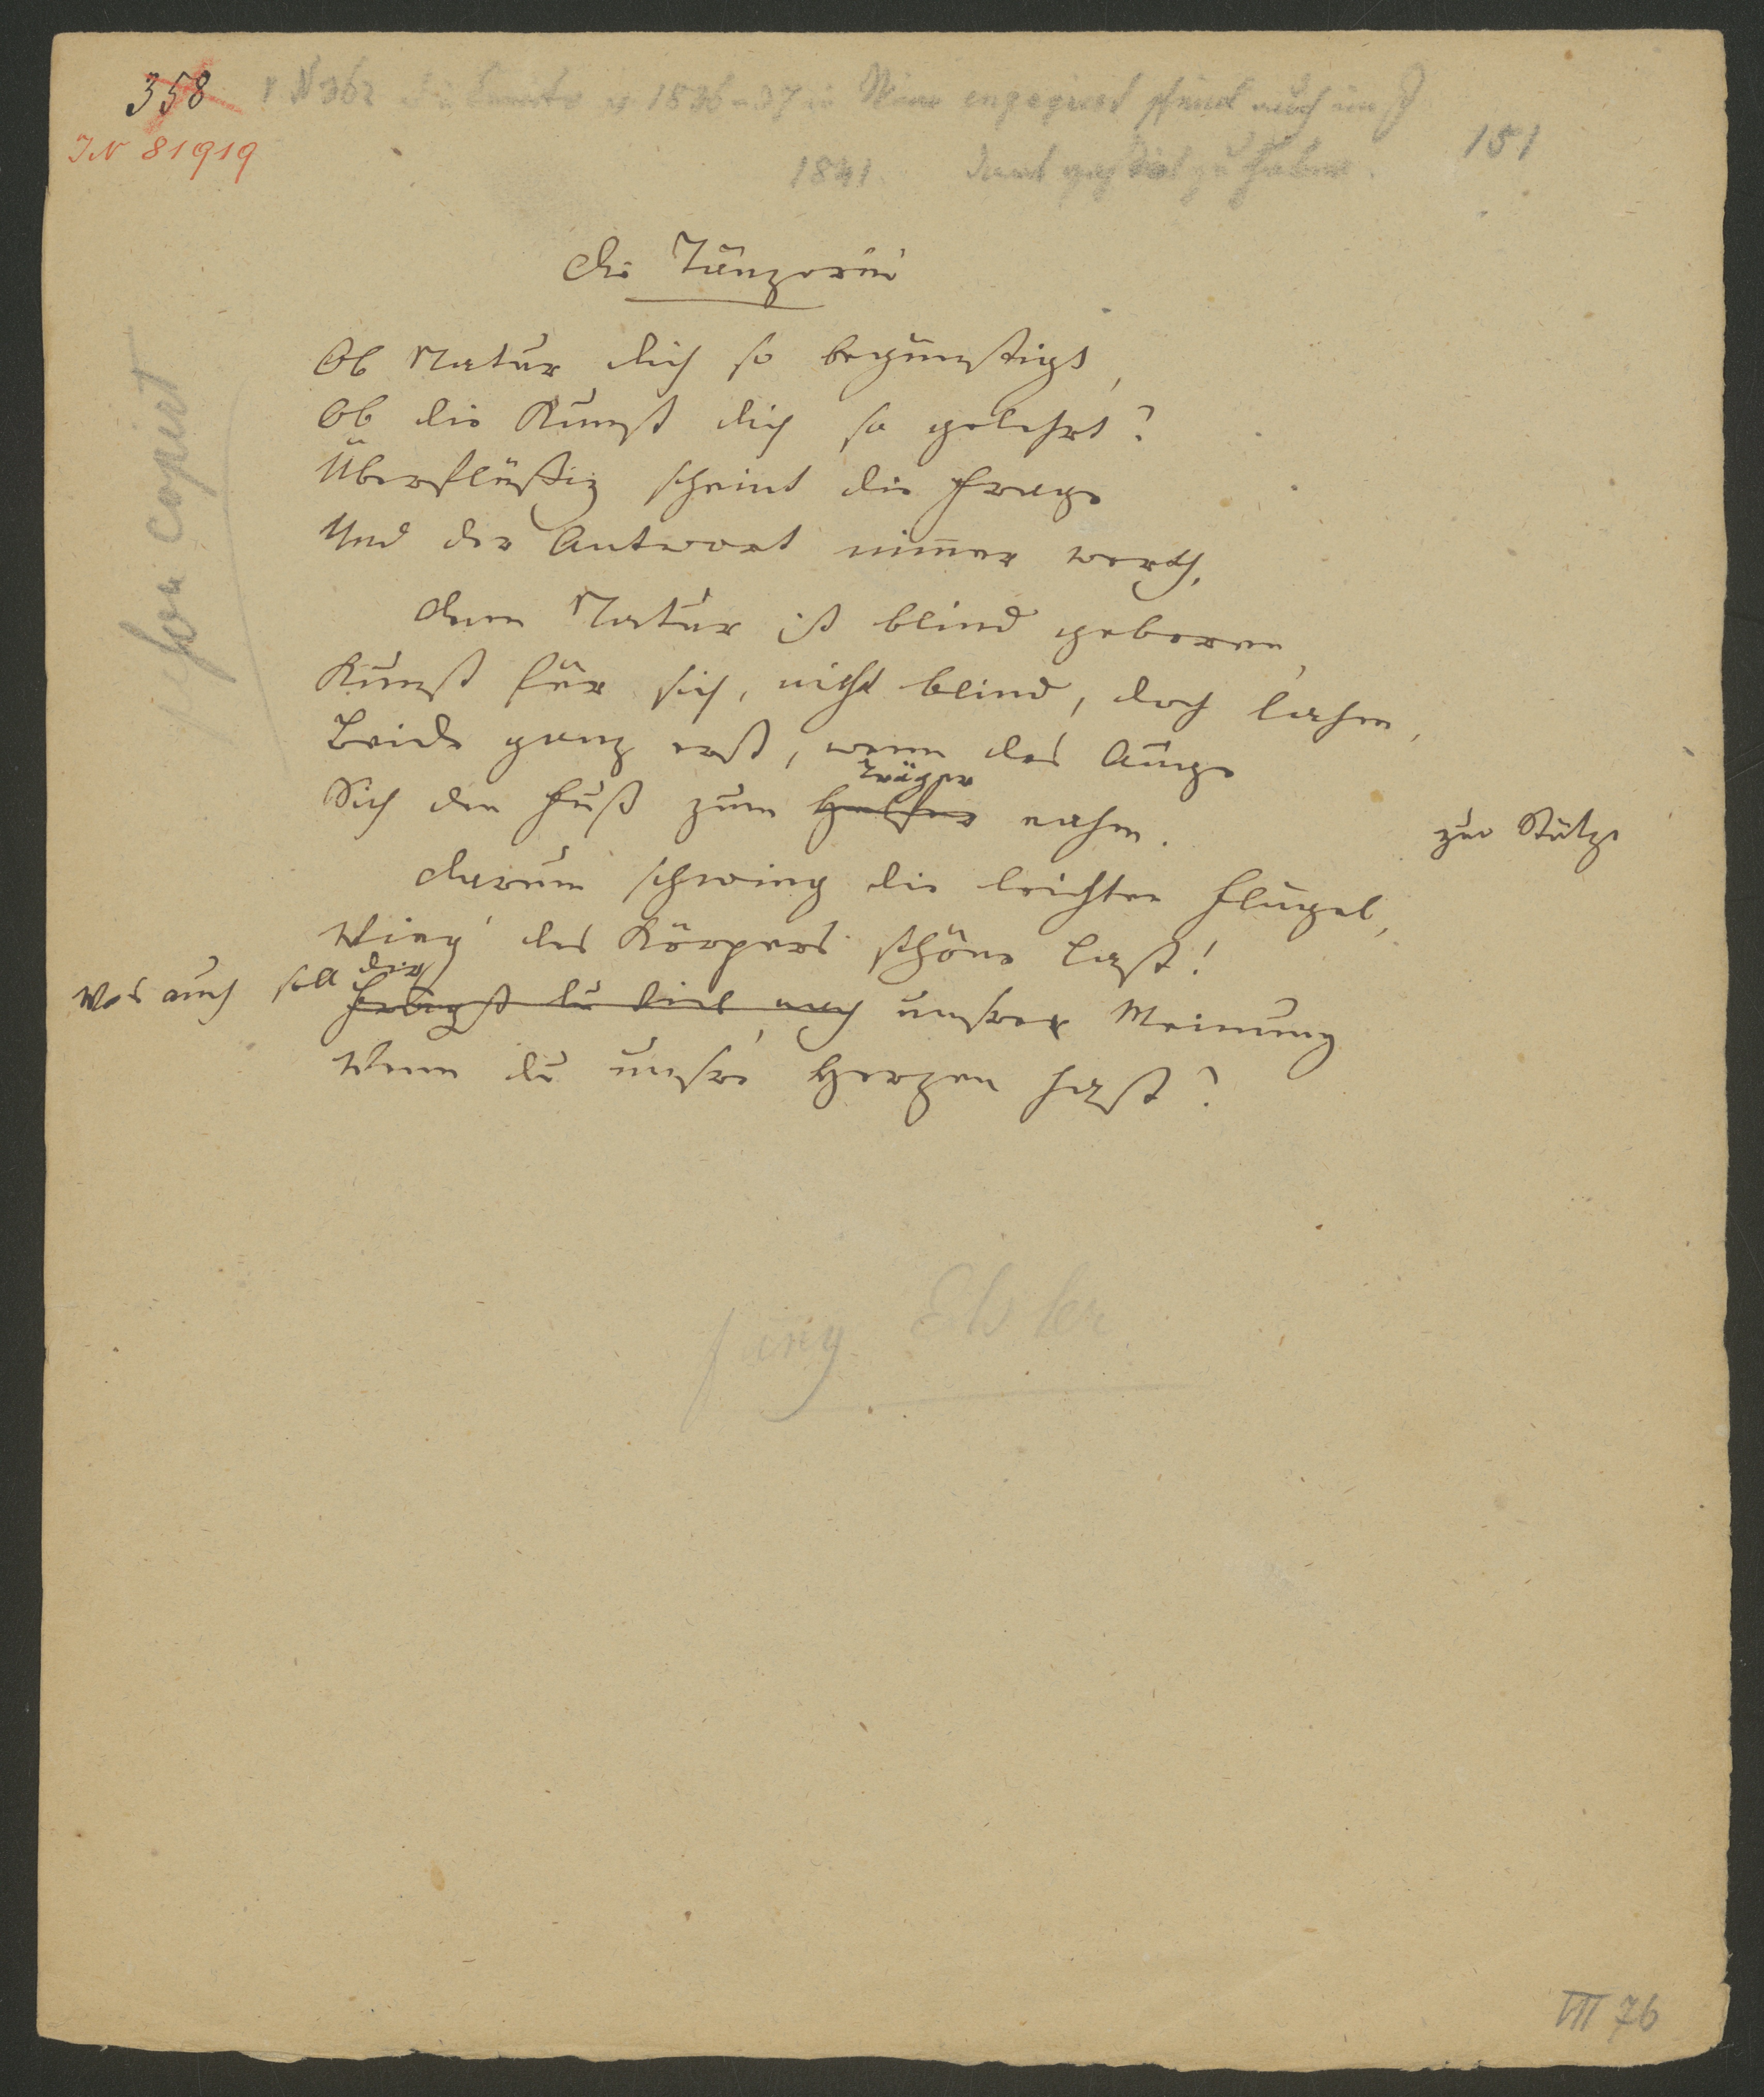 358
JN 81919
1836-37 in Wien engagiert scheint auch im J
1841. Dank gehabt zu haben.
151
schon copiert
Die Tänzerin
Ob Natur dich so begünstigt,
Ob die Kunst dich so gelehrt?
Überflüßig scheint die Frage
Und der Antwort nimmer werth.
Denn Natur ist blind geboren,
Kunst für sich, nicht blind, doch lahm,
Beide ganz erst, wenn das Auge
Träger
Sich den Fuß zum Helfer nahm.
zur Stütze
Darum schwing die leichten Flügel,
Wieg' des Körpers schöne Last!
Was auch soll dir
Frägst du viel nach unsrer Meinung
Wenn du unsre Herzen hast?
Elsler
VII 76